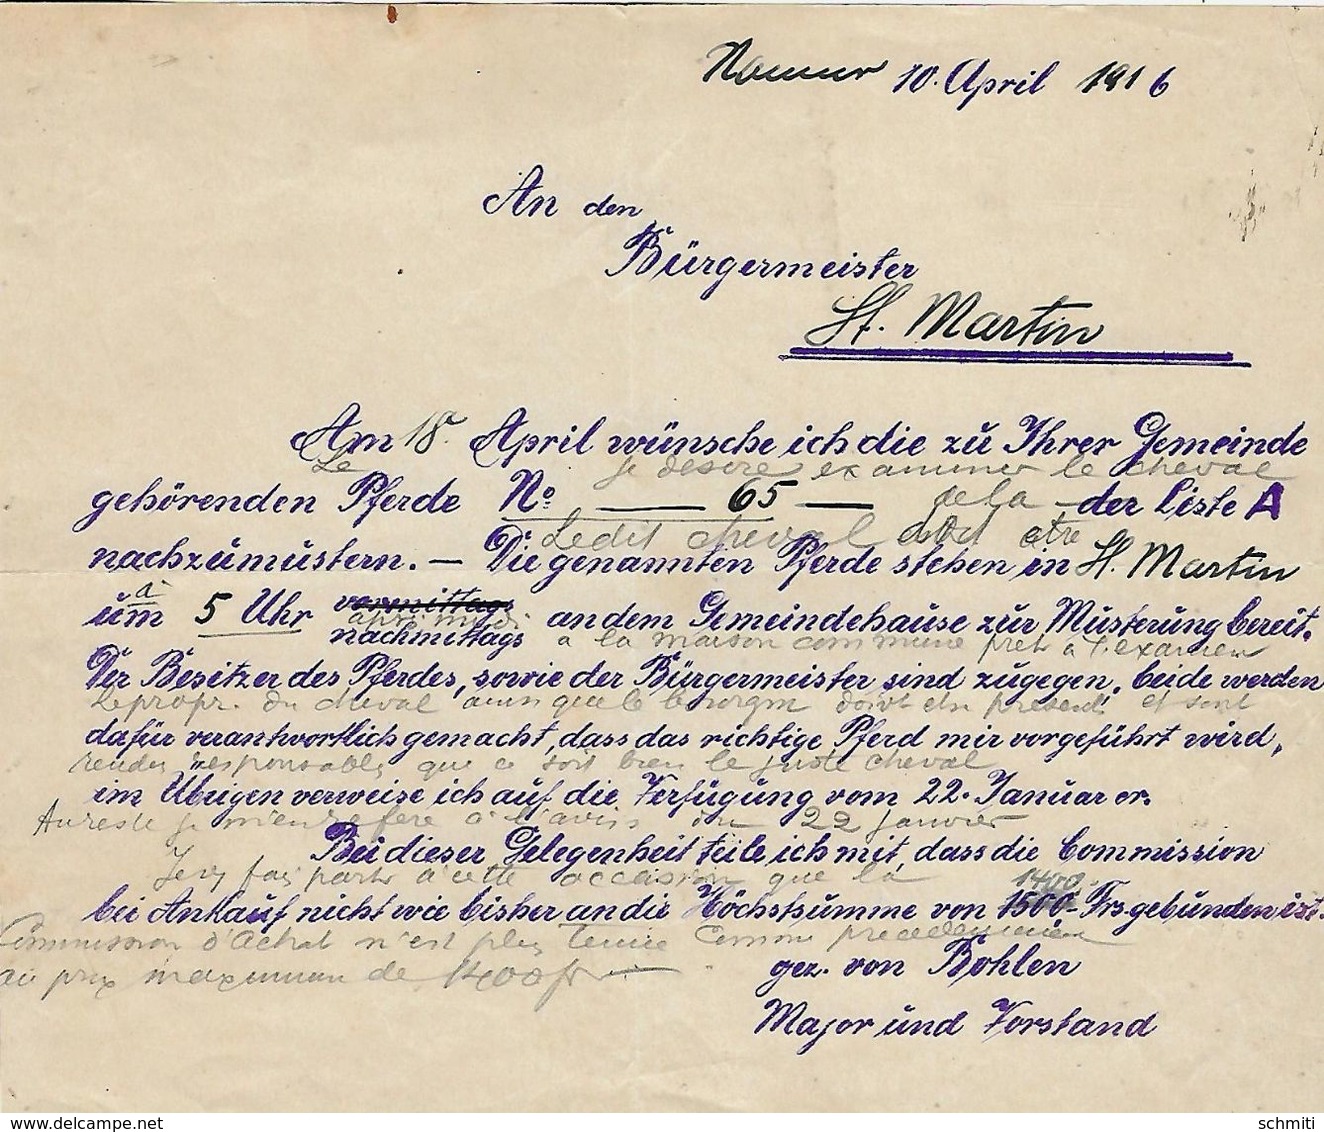 Namur 10. April 1916
An den
Bürgermeister
St. Martin
Am 18. April wünsche ich die zu Ihrer Gemeinde
Le je désire examiner le cheval
gehörenden Pferde No. — 65 — der Liste A
de la
Ledit cheval doit etre
nachzumustern. — Die genannten Pferde stehen in St. Martin
à
um 5 Uhr vormittags an dem Gemeindehause zur Musterung bereit.
apri midi
nachmittags
a la maison commune pret à l'examen
Der Besitzer des Pferdes, sowie der Bürgermeister sind zugegen, beide werden
Le propr. du cheval ainsi que le bourgm doivt etre present et sont
dafür verantwortlich gemacht, dass das richtige Pferd mir vorgeführt wird,
rendus responsables que ce soit bien le juste cheval
im Übrigen verweise ich auf die Verfügung vom 22. Januar cr.
Au reste je m'en refere à l'avis du 22 janvier
Bei dieser Gelegenheit teile ich mit, dass die Commission
J'en fais part à cette occasion que la
1400
bei Ankauf nicht wie bisher an die Höchstsumme von 1500.- Frs gebunden ist.
Commission d'Achat n'est plus tenue comme precedemment
au prix maximum de 1400 fr —
gez. von Bohlen
Major und Vorstand
www.delcampe.net
schmiti